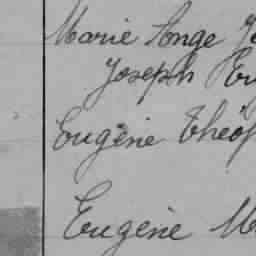 Marie Ange
Joseph
Eugène Théop
Eugène